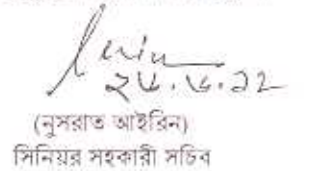 ২৮.৬.২২
(নুসরাত আইরিন)
সিনিয়র সহকারী সচিব